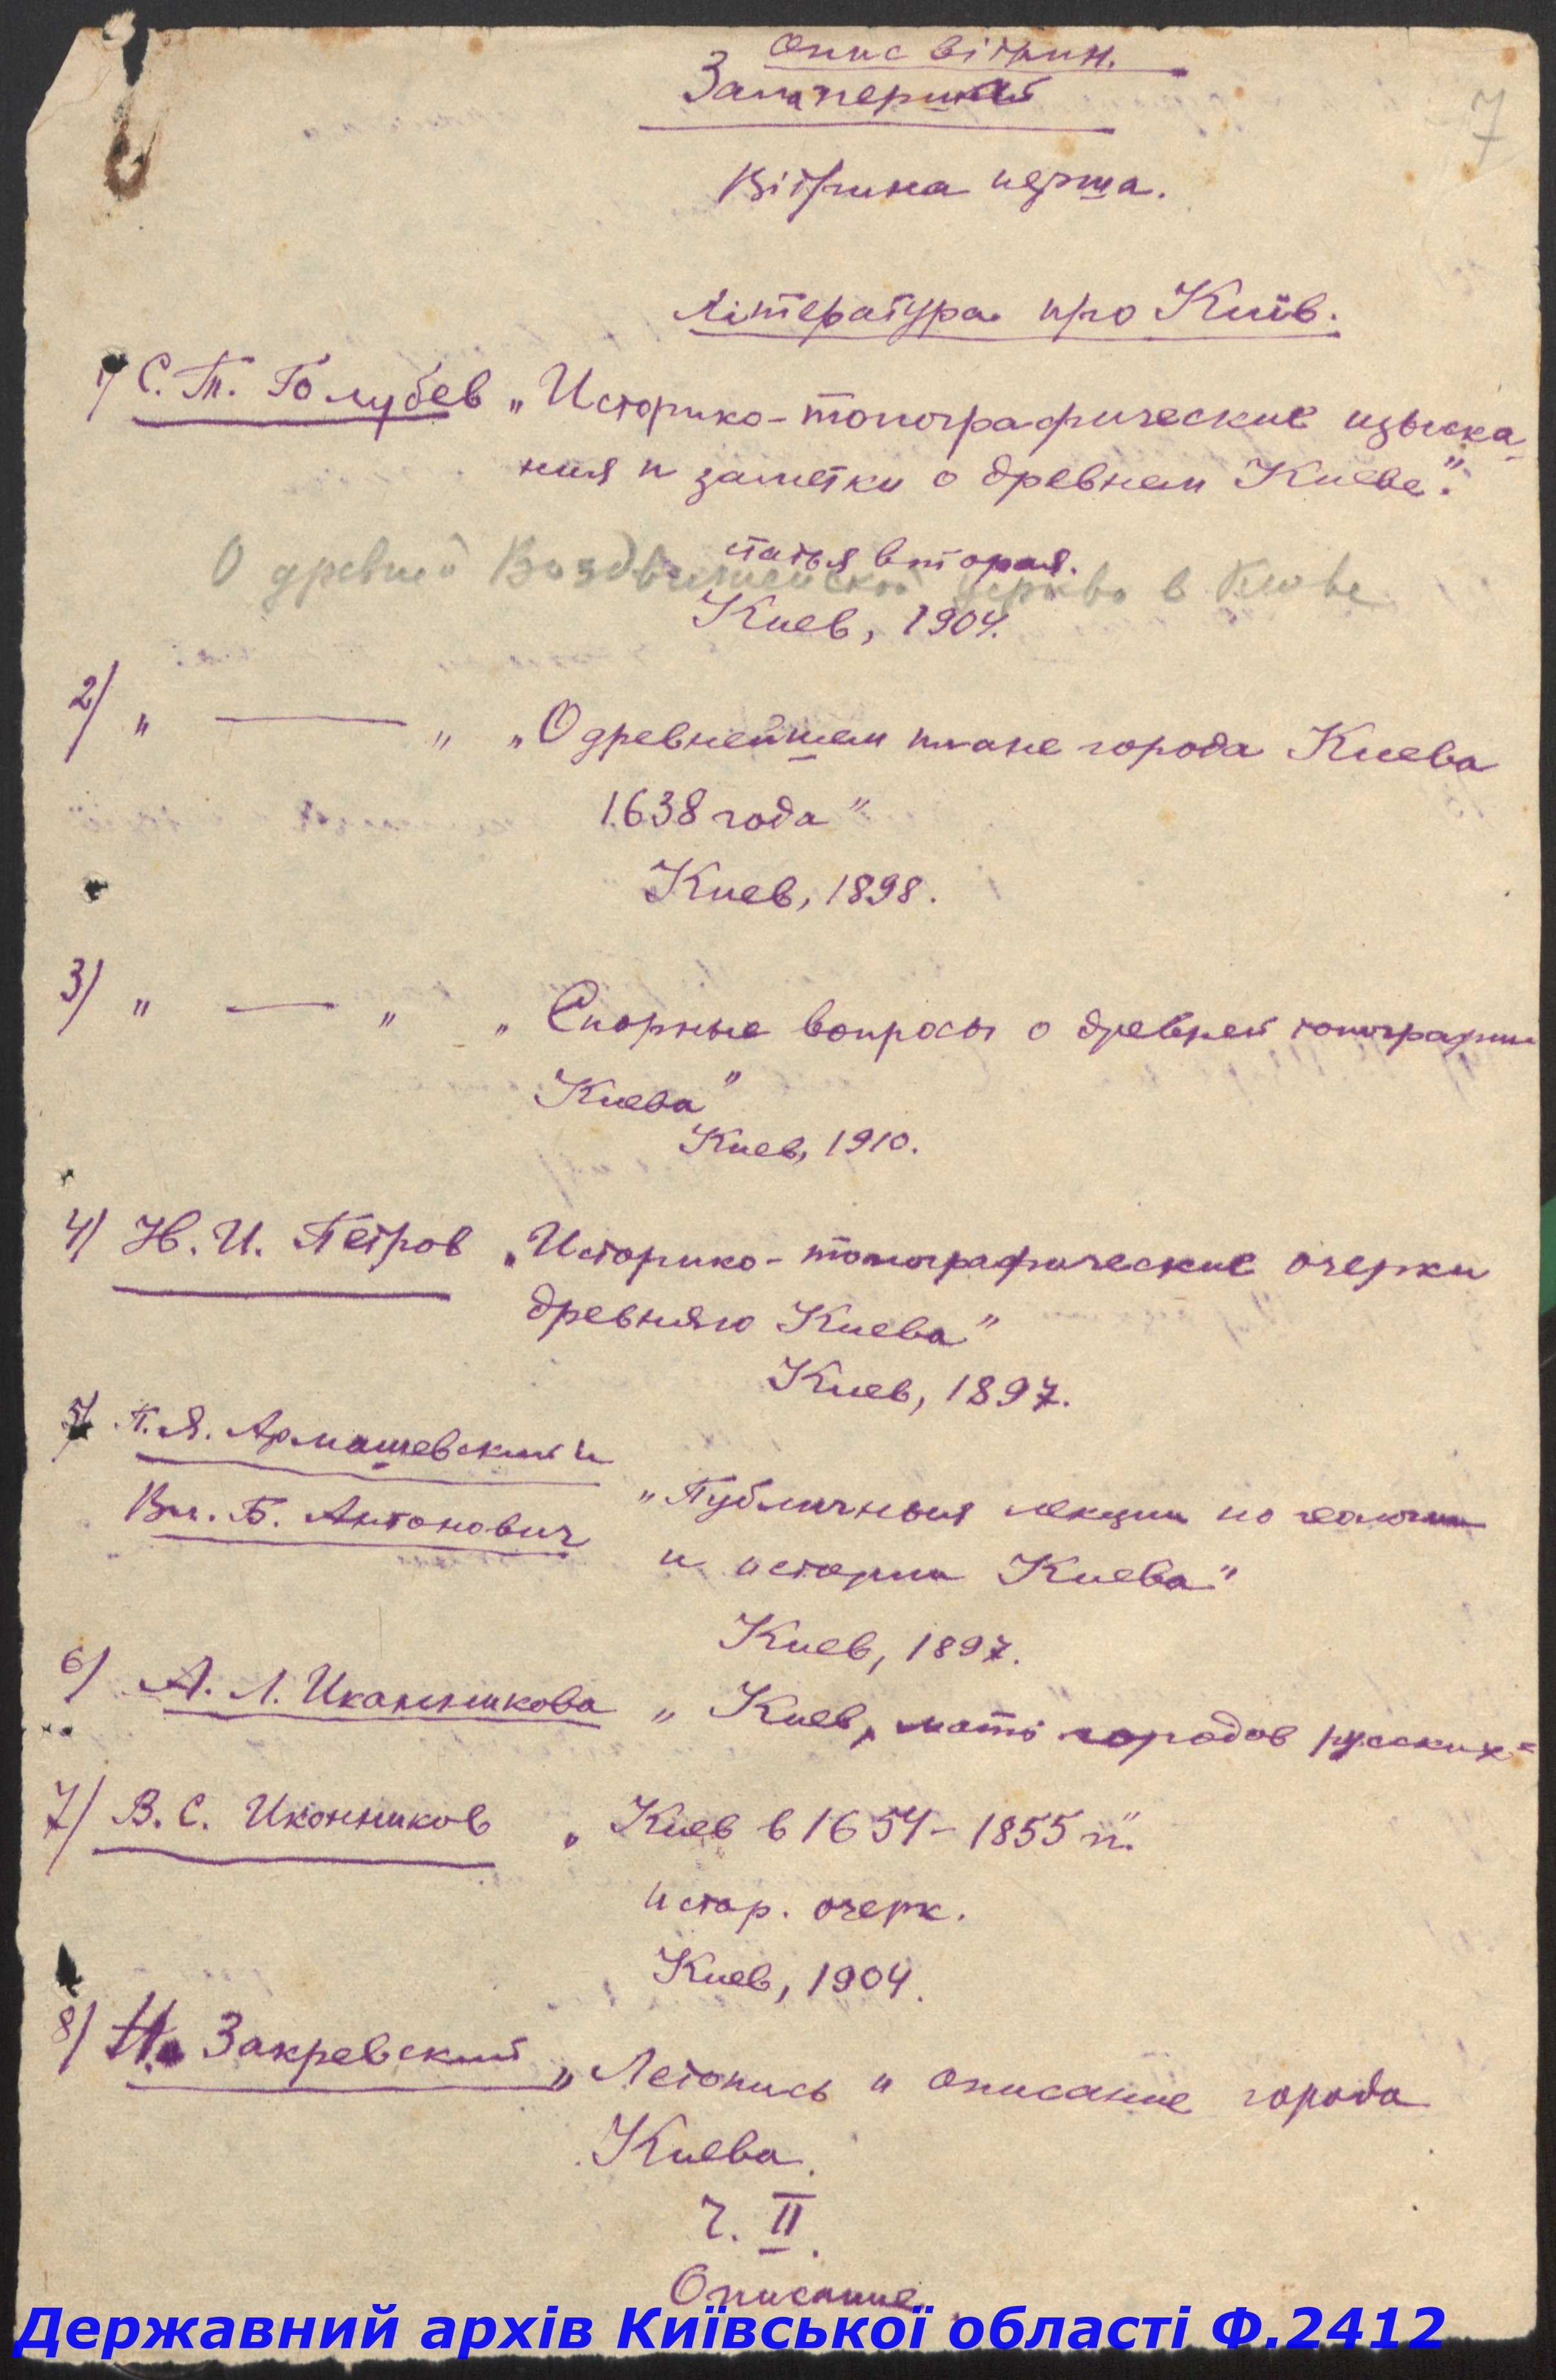 Опис вітрин.
Зал перший
7
Вітрина перша.
Література про Київ.
1) С. Т. Голубев „Историко-топографические изыска-
ния и заметки о древнем Киеве".
статья вторая.
О древней Воздвиженской церкви в Киеве
Киев, 1904.
2) „ — „ „О древнейшем плане города Киева
1638 года"
Киев, 1898.
3) „ — „ „Спорные вопросы о древней топографии
Киева"
Киев, 1910.
4) Н. И. Петров „Историко-топографические очерки
древняго Киева"
Киев, 1897.
5) П. Я. Армашевский и
Вл. Б. Антонович „Публичныя лекции по геологии
и истории Киева"
Киев, 1897.
6) А. Л. Иконникова „Киев, мать городов русских"
7) В. С. Иконников „Киев в 1654-1855 гг."
истор. очерк.
Киев, 1904.
8) Н. Закревский „Летопись и описание города
Киева.
Ч. II.
Описание.
Державний архів Київської області Ф.2412